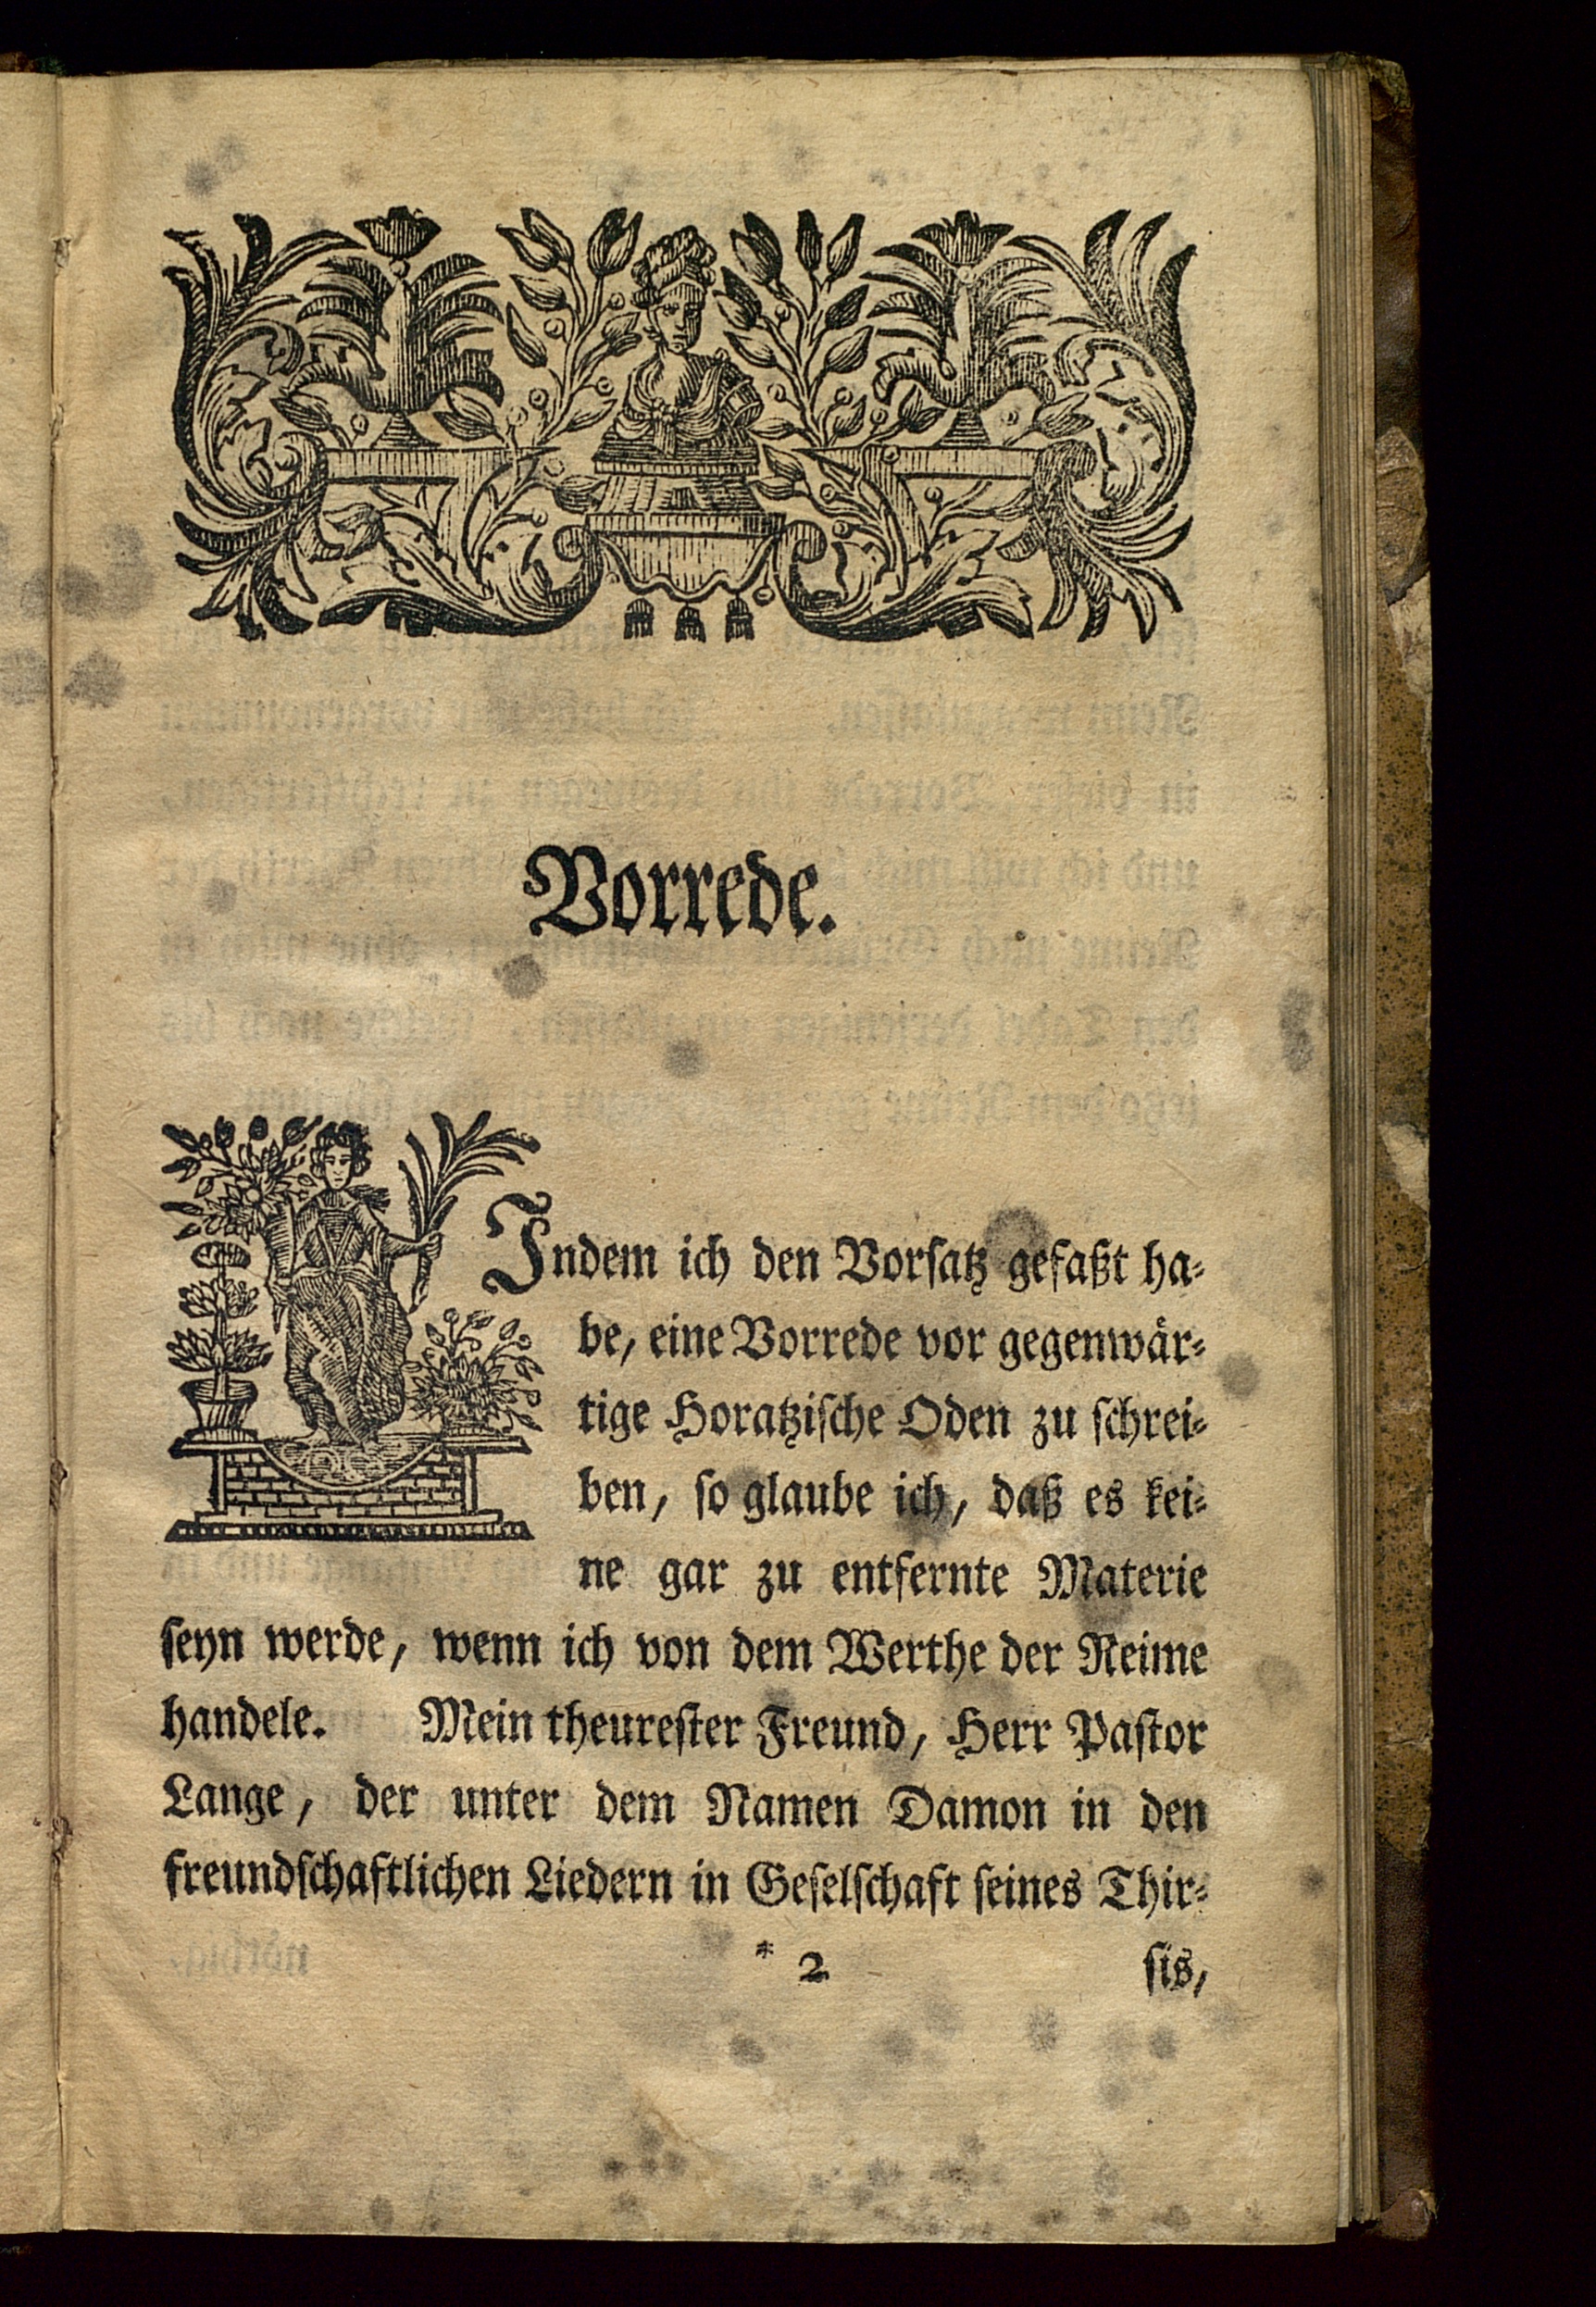 Vorrede.
Indem ich den Vorſatz gefaßt ha⸗
be, eine Vorrede vor gegenwär⸗
tige Horatziſche Oden zu ſchrei⸗
ben, ſo glaube ich, daß es kei⸗
ne gar zu entfernte Materie
ſeyn werde, wenn ich von dem Werthe der Reime
handele. Mein theureſter Freund, Herr Paſtor
Lange, der unter dem Namen Damon in den
freundſchaftlichen Liedern in Geſelſchaft ſeines Thir⸗
* 2 ſis,